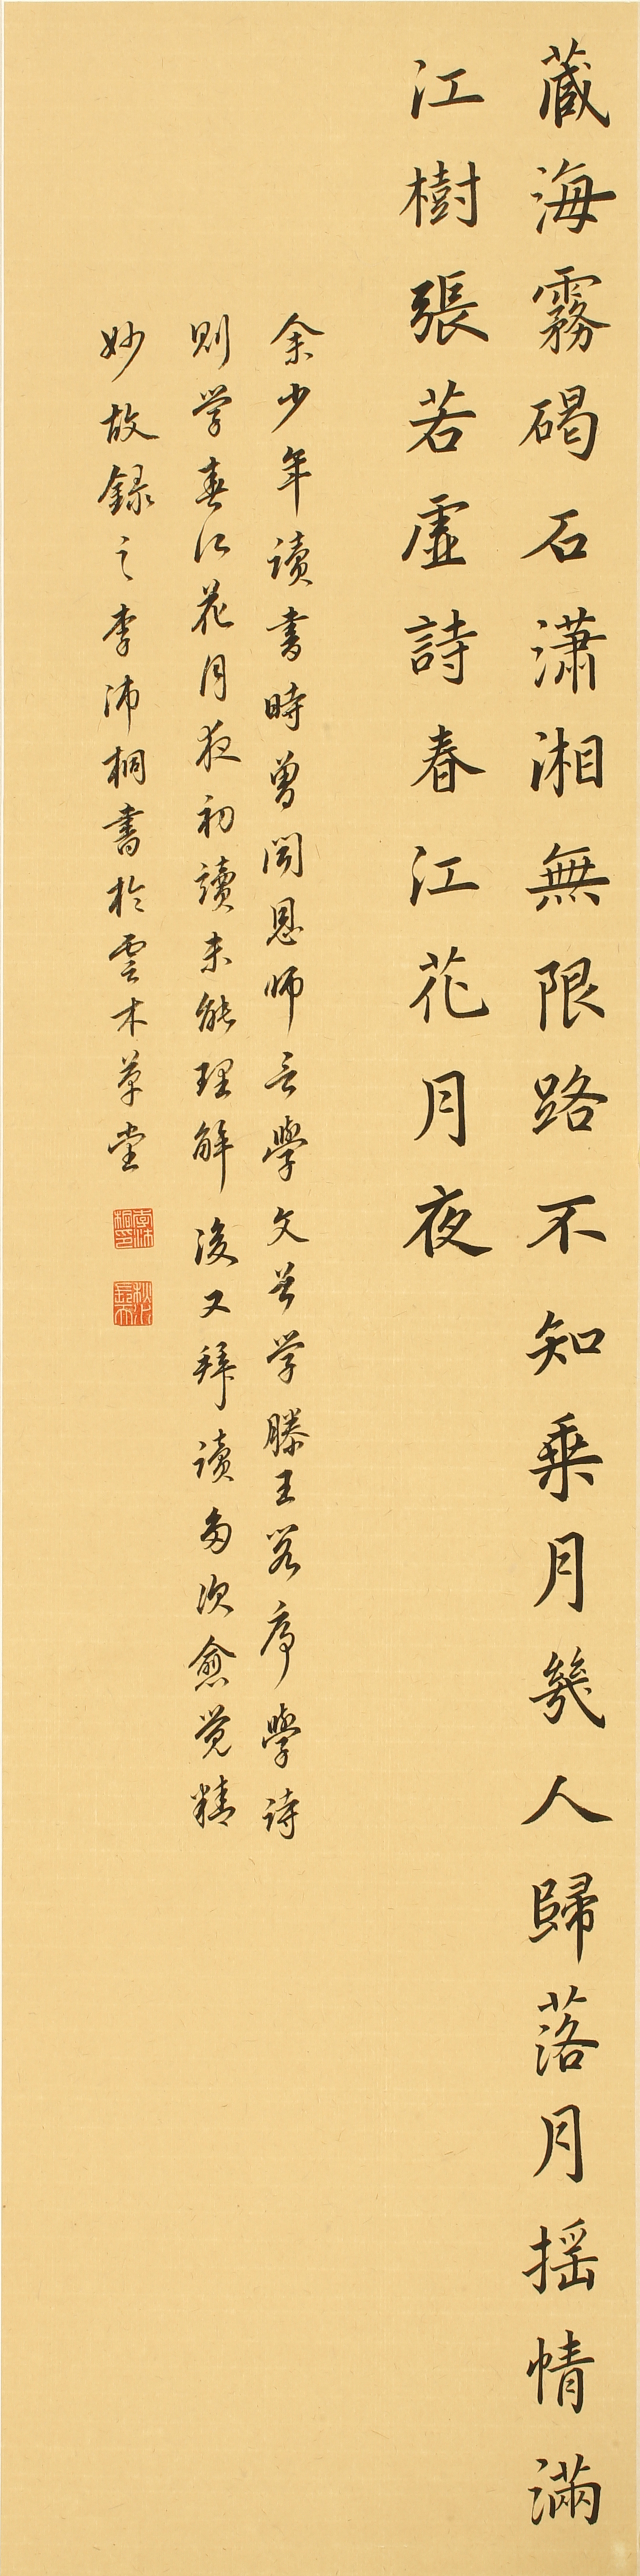 藏海霧碣石瀟湘無限路不知乘月幾人歸落月揺情滿
江樹張若虛詩春江花月夜
余少年讀書時曾聞恩師言學文當学滕王阁序學诗
则学春江花月夜初讀未能理解後又拜读多次愈觉精
妙故録之李沛桐書於雲木草堂
李沛桐印